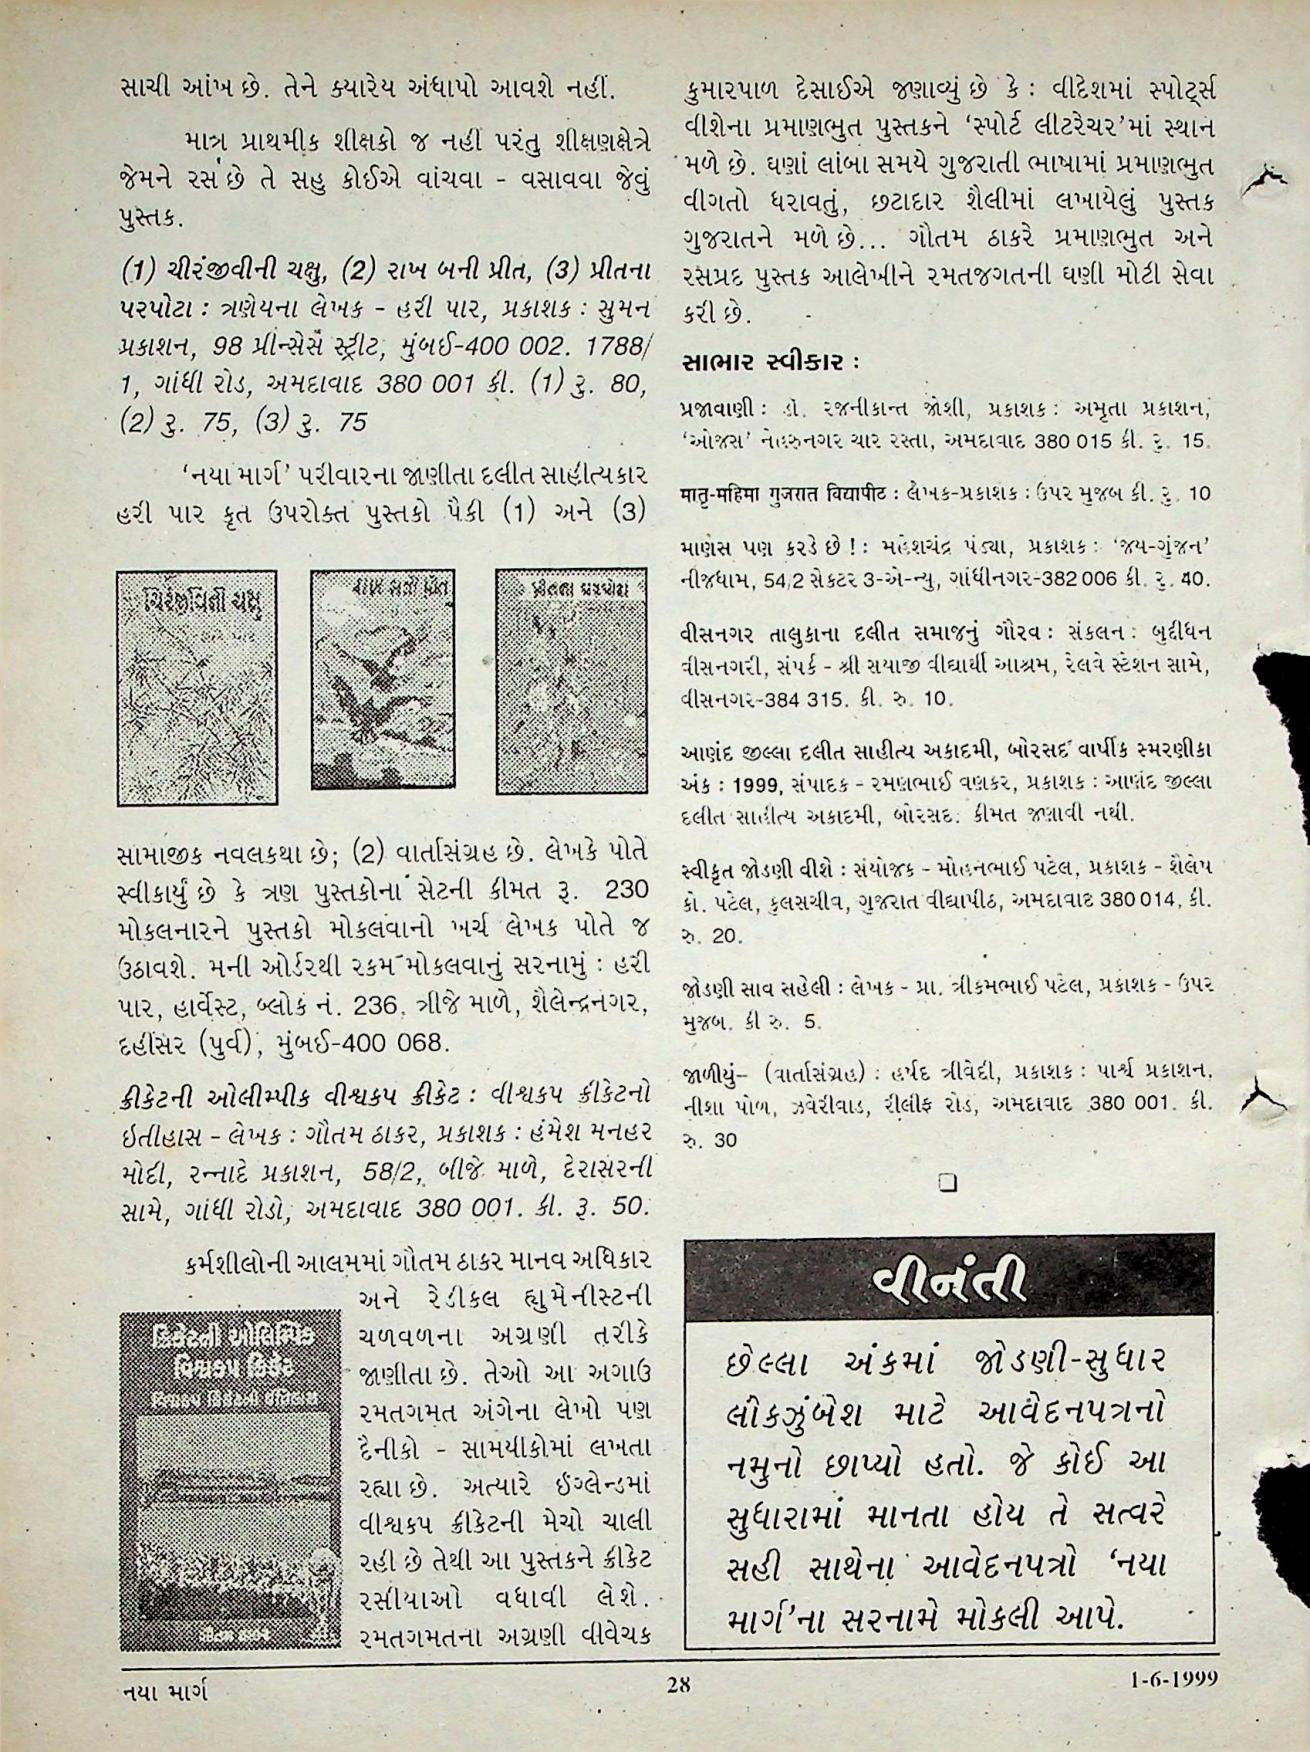 સાચી આંખ છે. તેને ક્યારેય અંધાપો આવશે નહીં.
માત્ર પ્રાથમીક શીક્ષકો જ નહીં પરંતુ શીક્ષણક્ષેત્રે
જેમને રસ છે તે સહુ કોઈએ વાંચવા - વસાવવા જેવું
પુસ્તક.
(1) ચીરંજીવીની ચક્ષુ, (2) રાખ બની પ્રીત, (3) પ્રીતના
પરપોટા : ત્રણેયના લેખક - હરી પાર, પ્રકાશક : સુમન
પ્રકાશન, 98 પ્રીન્સેસ સ્ટ્રીટ, મુંબઈ-400 002. 1788/
1, ગાંધી રોડ, અમદાવાદ 380 001 કી. (1) રુ. 80,
(2) રુ. 75, (3) રુ. 75
‘નયા માર્ગ’ પરીવારના જાણીતા દલીત સાહીત્યકાર
હરી પાર કૃત ઉપરોક્ત પુસ્તકો પૈકી (1) અને (3)
ચિરંજીવિની ચક્ષુ
રાખ બની પ્રીત
પ્રીતના પરપોટા
સામાજીક નવલકથા છે; (2) વાર્તાસંગ્રહ છે. લેખકે પોતે
સ્વીકાર્યું છે કે ત્રણ પુસ્તકોના સેટની કીમત રૂ. 230
મોકલનારને પુસ્તકો મોકલવાનો ખર્ચ લેખક પોતે જ
ઉઠાવશે. મની ઓર્ડરથી રકમ મોકલવાનું સરનામું : હરી
પાર, હાર્વેસ્ટ, બ્લોક નં. 236, ત્રીજે માળે, શૈલેન્દ્રનગર,
દહીંસર (પુર્વ), મુંબઈ-400 068.
ક્રીકેટની ઓલીમ્પીક વીશ્વકપ ક્રીકેટ : વીશ્વકપ ક્રીકેટનો
ઇતીહાસ - લેખક : ગૌતમ ઠાકર, પ્રકાશક : હંમેશ મનહર
મોદી, રન્નાદે પ્રકાશન, 58/2, બીજે માળે, દેરાસરની
સામે, ગાંધી રોડો, અમદાવાદ 380 001. કી. રૂ. 50.
કર્મશીલોની આલમમાં ગૌતમ ઠાકર માનવ અધિકાર
અને રેડીકલ હ્યુમેનીસ્ટની
ચળવળના અગ્રણી તરીકે
જાણીતા છે. તેઓ આ અગાઉ
રમતગમત અંગેના લેખો પણ
દૈનીકો - સામયીકોમાં લખતા
રહ્યા છે. અત્યારે ઇંગ્લેન્ડમાં
વીશ્વકપ ક્રીકેટની મેચો ચાલી
રહી છે તેથી આ પુસ્તકને ક્રીકેટ
રસીયાઓ વધાવી લેશે.
રમતગમતના અગ્રણી વીવેચક
ક્રિકેટની ઓલિમ્પિક
વિશ્વકપ ક્રિકેટ
વિશ્વકપ ક્રિકેટનો ઇતિહાસ
ગૌતમ ઠાકર
કુમારપાળ દેસાઈએ જણાવ્યું છે કે : વીદેશમાં સ્પોર્ટ્સ
વીશેના પ્રમાણભુત પુસ્તકને ‘સ્પોર્ટ લીટરેચર’માં સ્થાન
મળે છે. ઘણાં લાંબા સમયે ગુજરાતી ભાષામાં પ્રમાણભુત
વીગતો ધરાવતું, છટાદાર શૈલીમાં લખાયેલું પુસ્તક
ગુજરાતને મળે છે... ગૌતમ ઠાકરે પ્રમાણભુત અને
રસપ્રદ પુસ્તક આલેખીને રમતજગતની ઘણી મોટી સેવા
કરી છે.
સાભાર સ્વીકાર :
પ્રજાવાણી : ડો. રજનીકાન્ત જોશી, પ્રકાશક : અમૃતા પ્રકાશન,
‘ઓજસ’ નેહરુનગર ચાર રસ્તા, અમદાવાદ 380 015 કી. રુ. 15.
मातृ-महिमा गुजरात विद्यापीठ : લેખક-પ્રકાશક : ઉપર મુજબ કી. રુ. 10
માણસ પણ કરડે છે ! : મહેશચંદ્ર પંડ્યા, પ્રકાશક : ‘જય-ગુંજન’
નીજધામ, 54/2 સેકટર 3-એ-ન્યુ, ગાંધીનગર-382 006 કી. રુ. 40.
વીસનગર તાલુકાના દલીત સમાજનું ગૌરવ : સંકલન : બુદ્દીધન
વીસનગરી, સંપર્ક - શ્રી સયાજી વીદ્યાર્થી આશ્રમ, રેલવે સ્ટેશન સામે,
વીસનગર-384 315. કી. રુ. 10.
આણંદ જીલ્લા દલીત સાહીત્ય અકાદમી, બોરસદ વાર્ષીક સ્મરણીકા
અંક : 1999, સંપાદક - રમણભાઈ વણકર, પ્રકાશક : આણંદ જીલ્લા
દલીત સાહીત્ય અકાદમી, બોરસદ. કીમત જણાવી નથી.
સ્વીકૃત જોડણી વીશે : સંયોજક - મોહનભાઈ પટેલ, પ્રકાશક - શૈલેષ
કો. પટેલ, કુલસચીવ, ગુજરાત વીદ્યાપીઠ, અમદાવાદ 380 014, કી.
રુ. 20.
જોડણી સાવ સહેલી : લેખક - પ્રા. ત્રીકમભાઈ પટેલ, પ્રકાશક - ઉપર
મુજબ. કી રુ. 5.
જાળીયું– (વાર્તાસંગ્રહ) : હર્ષદ ત્રીવેદી, પ્રકાશક : પાર્શ્વ પ્રકાશન,
નીશા પોળ, ઝવેરીવાડ, રીલીફ રોડ, અમદાવાદ 380 001. કી.
રુ. 30
❑
વીનંતી
છેલ્લા અંકમાં જોડણી-સુધાર
લોકઝુંબેશ માટે આવેદનપત્રનો
નમુનો છાપ્યો હતો. જે કોઈ આ
સુધારામાં માનતા હોય તે સત્વરે
સહી સાથેના આવેદનપત્રો ‘નયા
માર્ગ’ના સરનામે મોકલી આપે.
નયા માર્ગ
28
1-6-1999